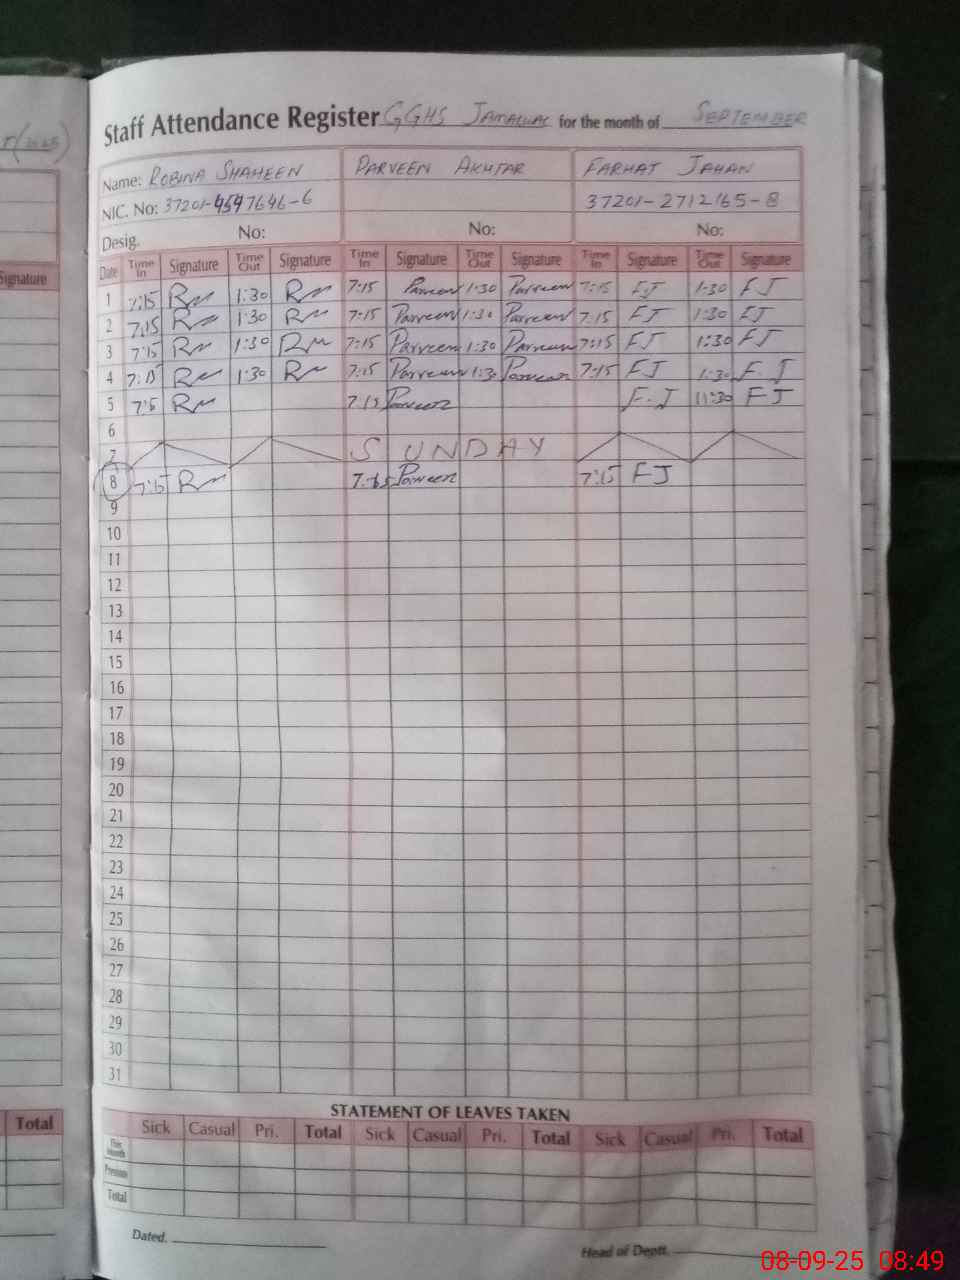 r(2025)
Signature
Total
Staff Attendance Register GGHS JAMALWAL for the month of SEPTEMBER
Name: ROBINA SHAHEEN PARVEEN AKHTAR FARHAT JAHAN
NIC. No: 37201-4547646-6 37201-2712165-8
Desig. No: No: No:
Date Time In Signature Time Out Signature Time In Signature Time Out Signature Time In Signature Time Out Signature
1 7:15 Rm 1:30 Rm 7:15 Parveen 1:30 Parveen 7:15 FJ 1:30 FJ
2 7:15 Rm 1:30 Rm 7:15 Parveen 1:30 Parveen 7:15 FJ 1:30 FJ
3 7:15 Rm 1:30 Rm 7:15 Parveen 1:30 Parveen 7:15 FJ 1:30 FJ
4 7:15 Rm 1:30 Rm 7:15 Parveen 1:30 Parveen 7:15 FJ 1:30 F.J
5 7:5 Rm 7:15 Parveen F.J 11:30 FJ
6
7 SUNDAY
8 7:15 Rm Parveen 7:15 FJ
9
10
11
12
13
14
15
16
17
18
19
20
21
22
23
24
25
26
27
28
29
30
31
STATEMENT OF LEAVES TAKEN
Sick Casual Pri. Total Sick Casual Pri. Total Sick Casual Pri. Total
This Month
Previous
Total
Dated.
Head of Deptt.
08-09-25 08:49